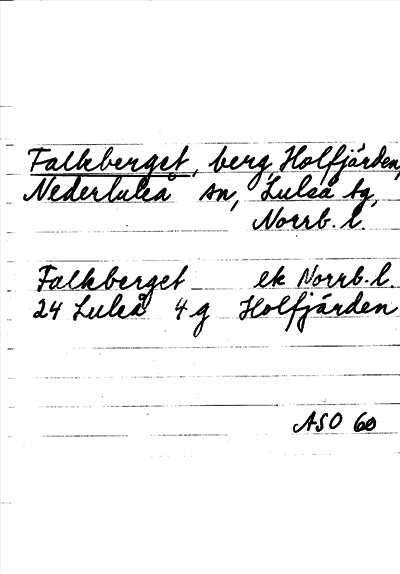 Falkberget, berg, Holfjärden,
Nederluleå sn, Luleå tg,
Norrb. l.
Falkberget ek Norrb. l.
24 Luleå 4 g Holfjärden
ASO 60